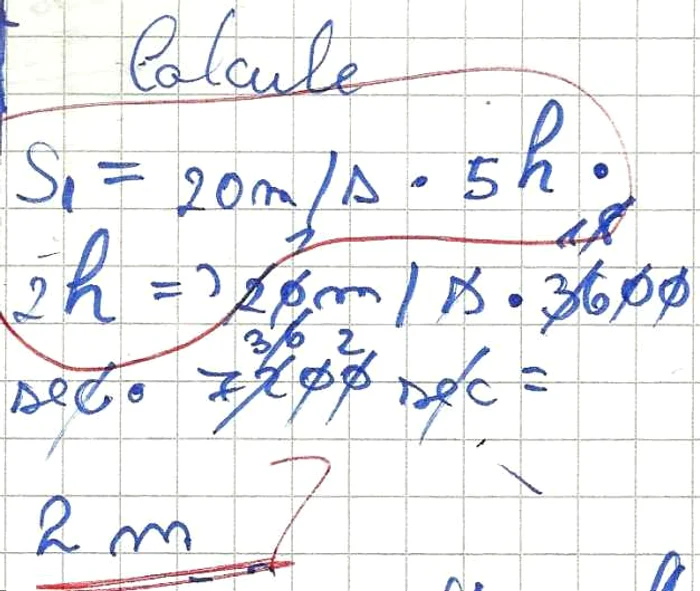 Calcule
S₁ = 20m/s · 5h ·
2h = 20m/s · 3600
18
36 2
sec · 7200 sec =
2 m